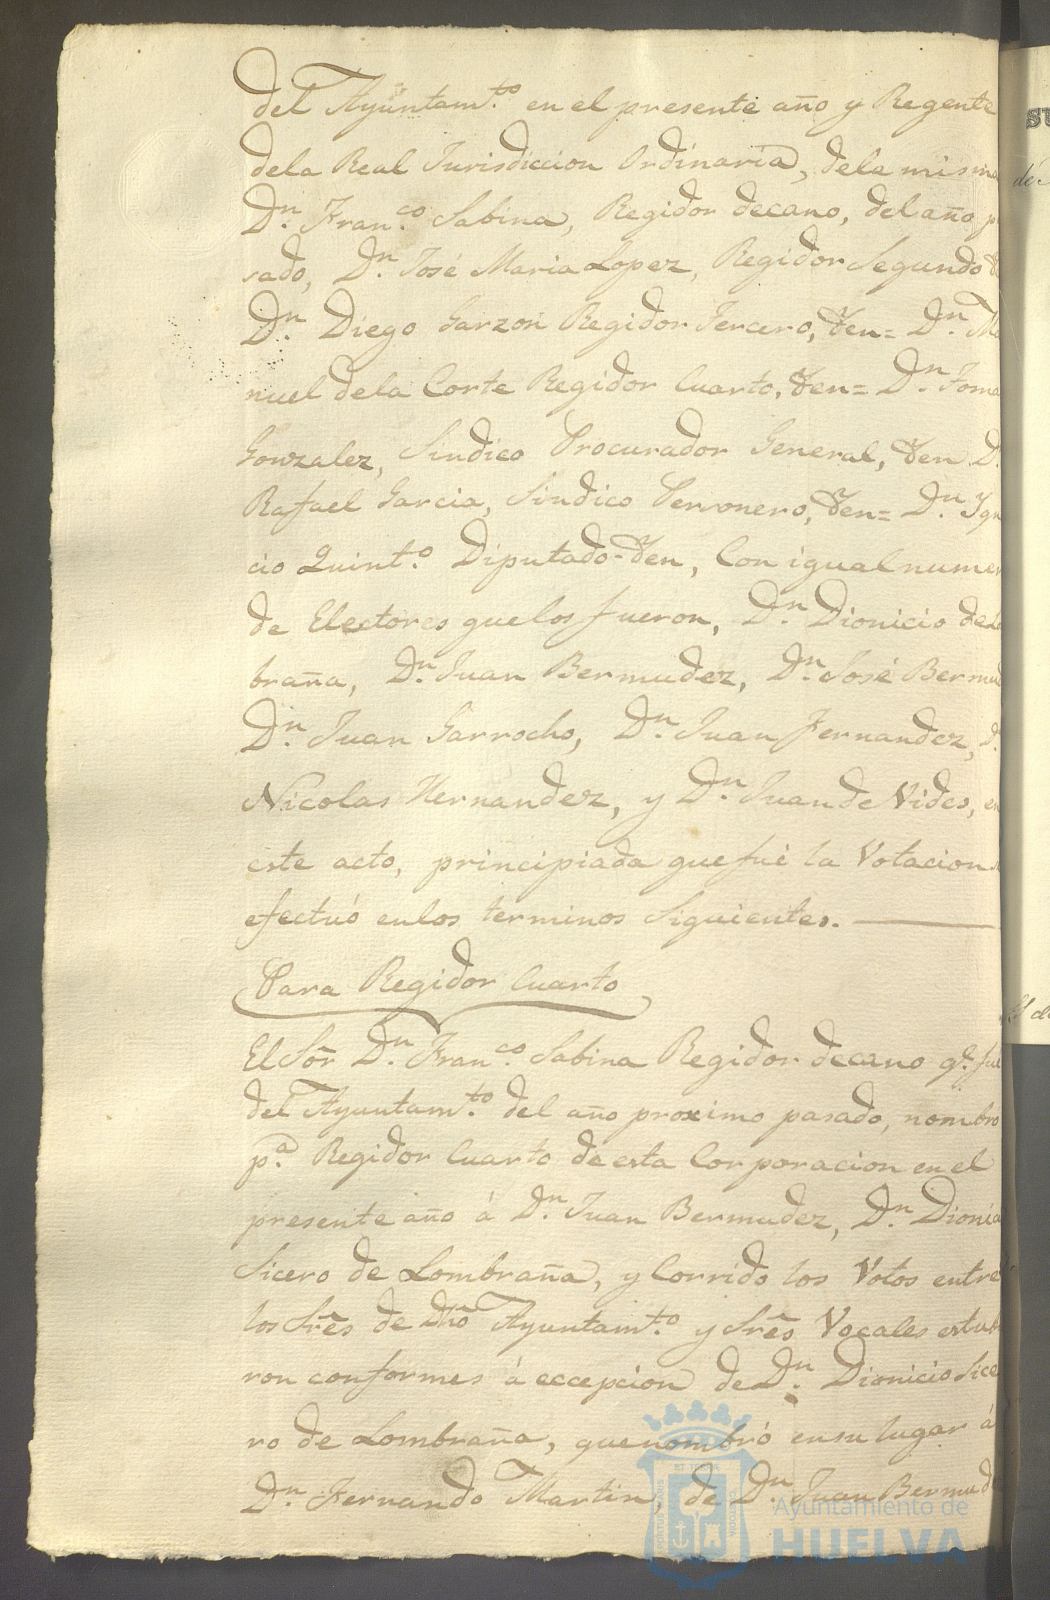 del Ayuntam.to en el presente año y Regente
dela Real Jurisdiccion Ordinaria, dela misma
Dn. Fran.co Sabina, Regidor decano, del año p
sado, Dn. José Maria Lopez, Regidor Segundo
Dn. Diego Garzon Regidor Tercero, Yden= Dn. Ma
nuel dela Corte Regidor Cuarto, Yden= Dn. Toma
Gonzalez, Sindico Procurador General, Yden D.
Rafael Garcia, Sindico Personero, Yden= Dn. Ygn
cio Quint.o Diputado Yden, Con igual numer
de Electores quelos fueron, Dn. Dionicio de Lo
braña, Dn. Juan Bermudez, Dn. José Bermu
Dn. Juan Garrocho, Dn. Juan Fernandez, D.
Nicolas Hernandez, y Dn. Juan de Vides, en
este acto, principiada quefué la Votacion
efectuó enlos terminos Siguientes.
Para Regidor Cuarto
El Sõr Dn. Fran.co Sabina Regidor decano q.e fue
del Ayuntam.to del año proximo pasado, nombro
p.a Regidor Cuarto de esta Corporacion en el
presente año á Dn. Juan Bermudez, Dn. Dionici
Sicero de Lombraña, y Corrido los Votos entre
los Srẽs de Dhõ Ayuntam.to y Srẽs Vocales estubi
ron conformes á eccepcion de Dn. Dionicio Sice
ro de Lombraña, quenombró ensu lugar á
Dn. Fernando Martin, de Dn. Juan Bermud
Ayuntamiento de
HUELVA